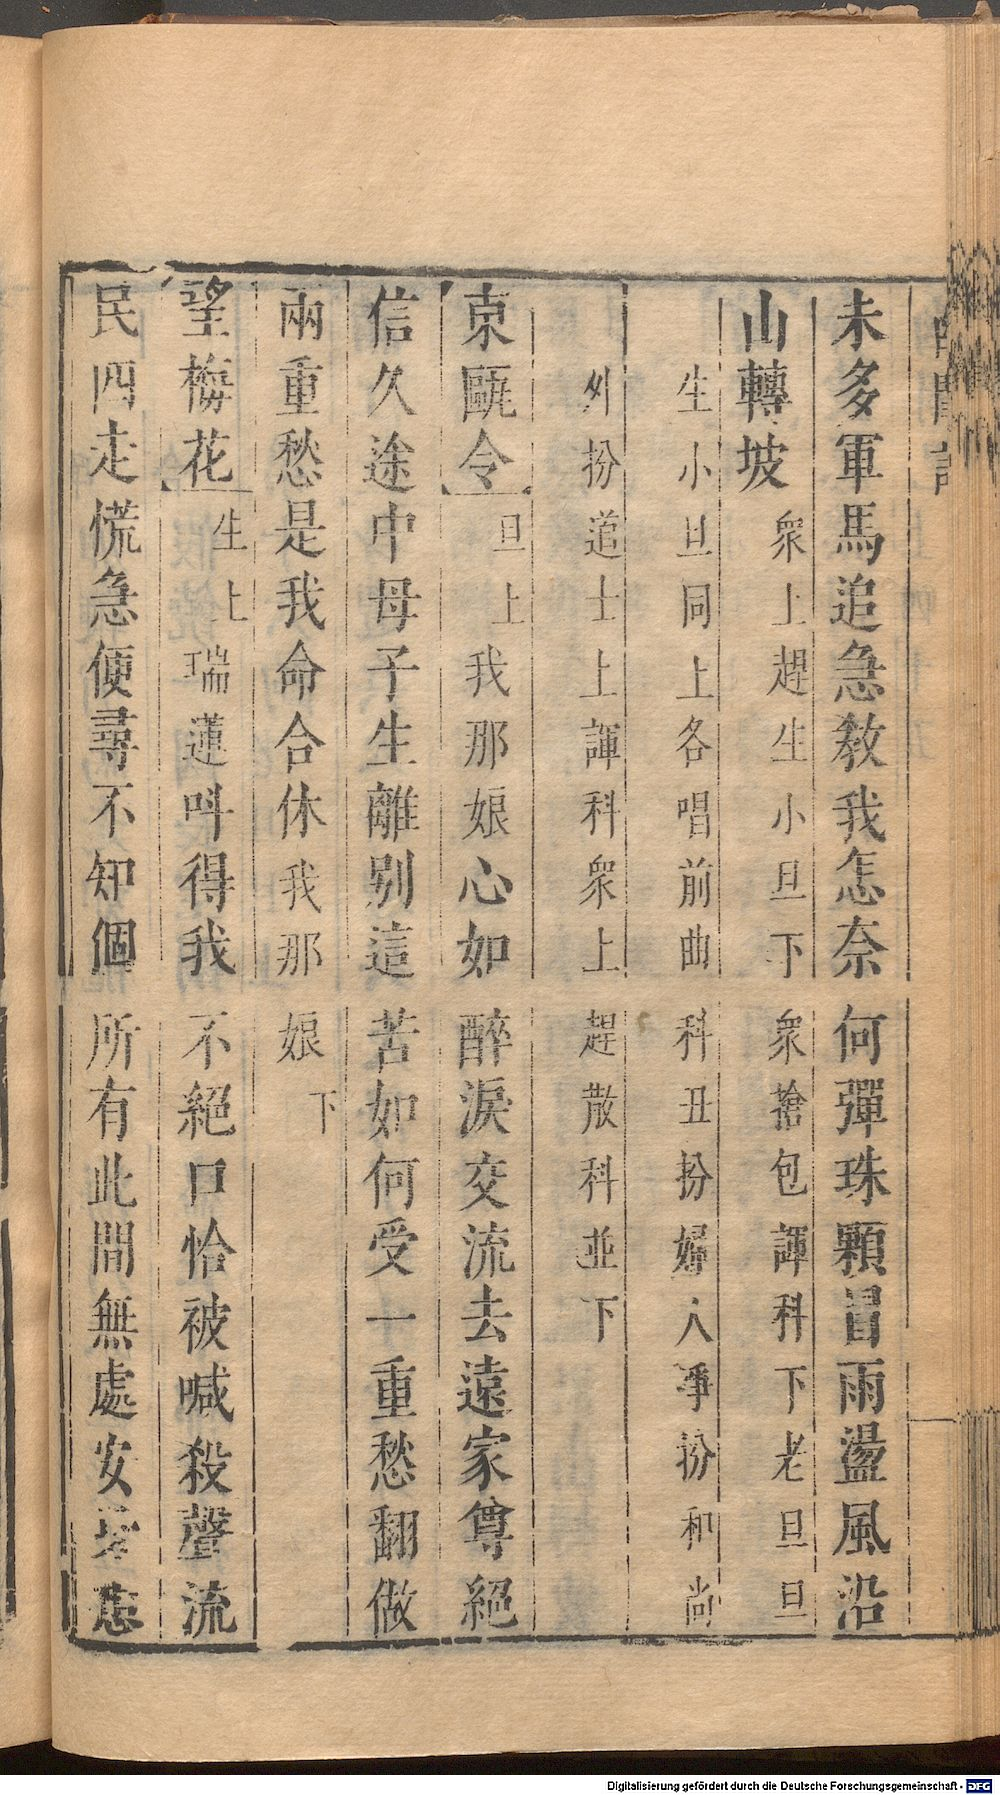 未多軍馬追急教我怎奈何彈珠顆冒雨盪風沿
山轉坡衆上趕生小旦下衆搶包諢科下老旦旦
生小旦同上各唱前曲科丑扮婦人爭扮和尚
外扮道士上諢科衆上趕散科並下
東甌令旦上我那娘心如醉淚交流去遠家尊絕
信久途中母子生離別這苦如何受一重愁翻做
兩重愁是我命合休我那娘下
望梅花生上瑞蓮呌得我不絕口恰被喊殺聲流
民四走慌急便尋不知個所有此間無處安
Digitalisierung gefördert durch die Deutsche Forschungsgemeinschaft - DFG